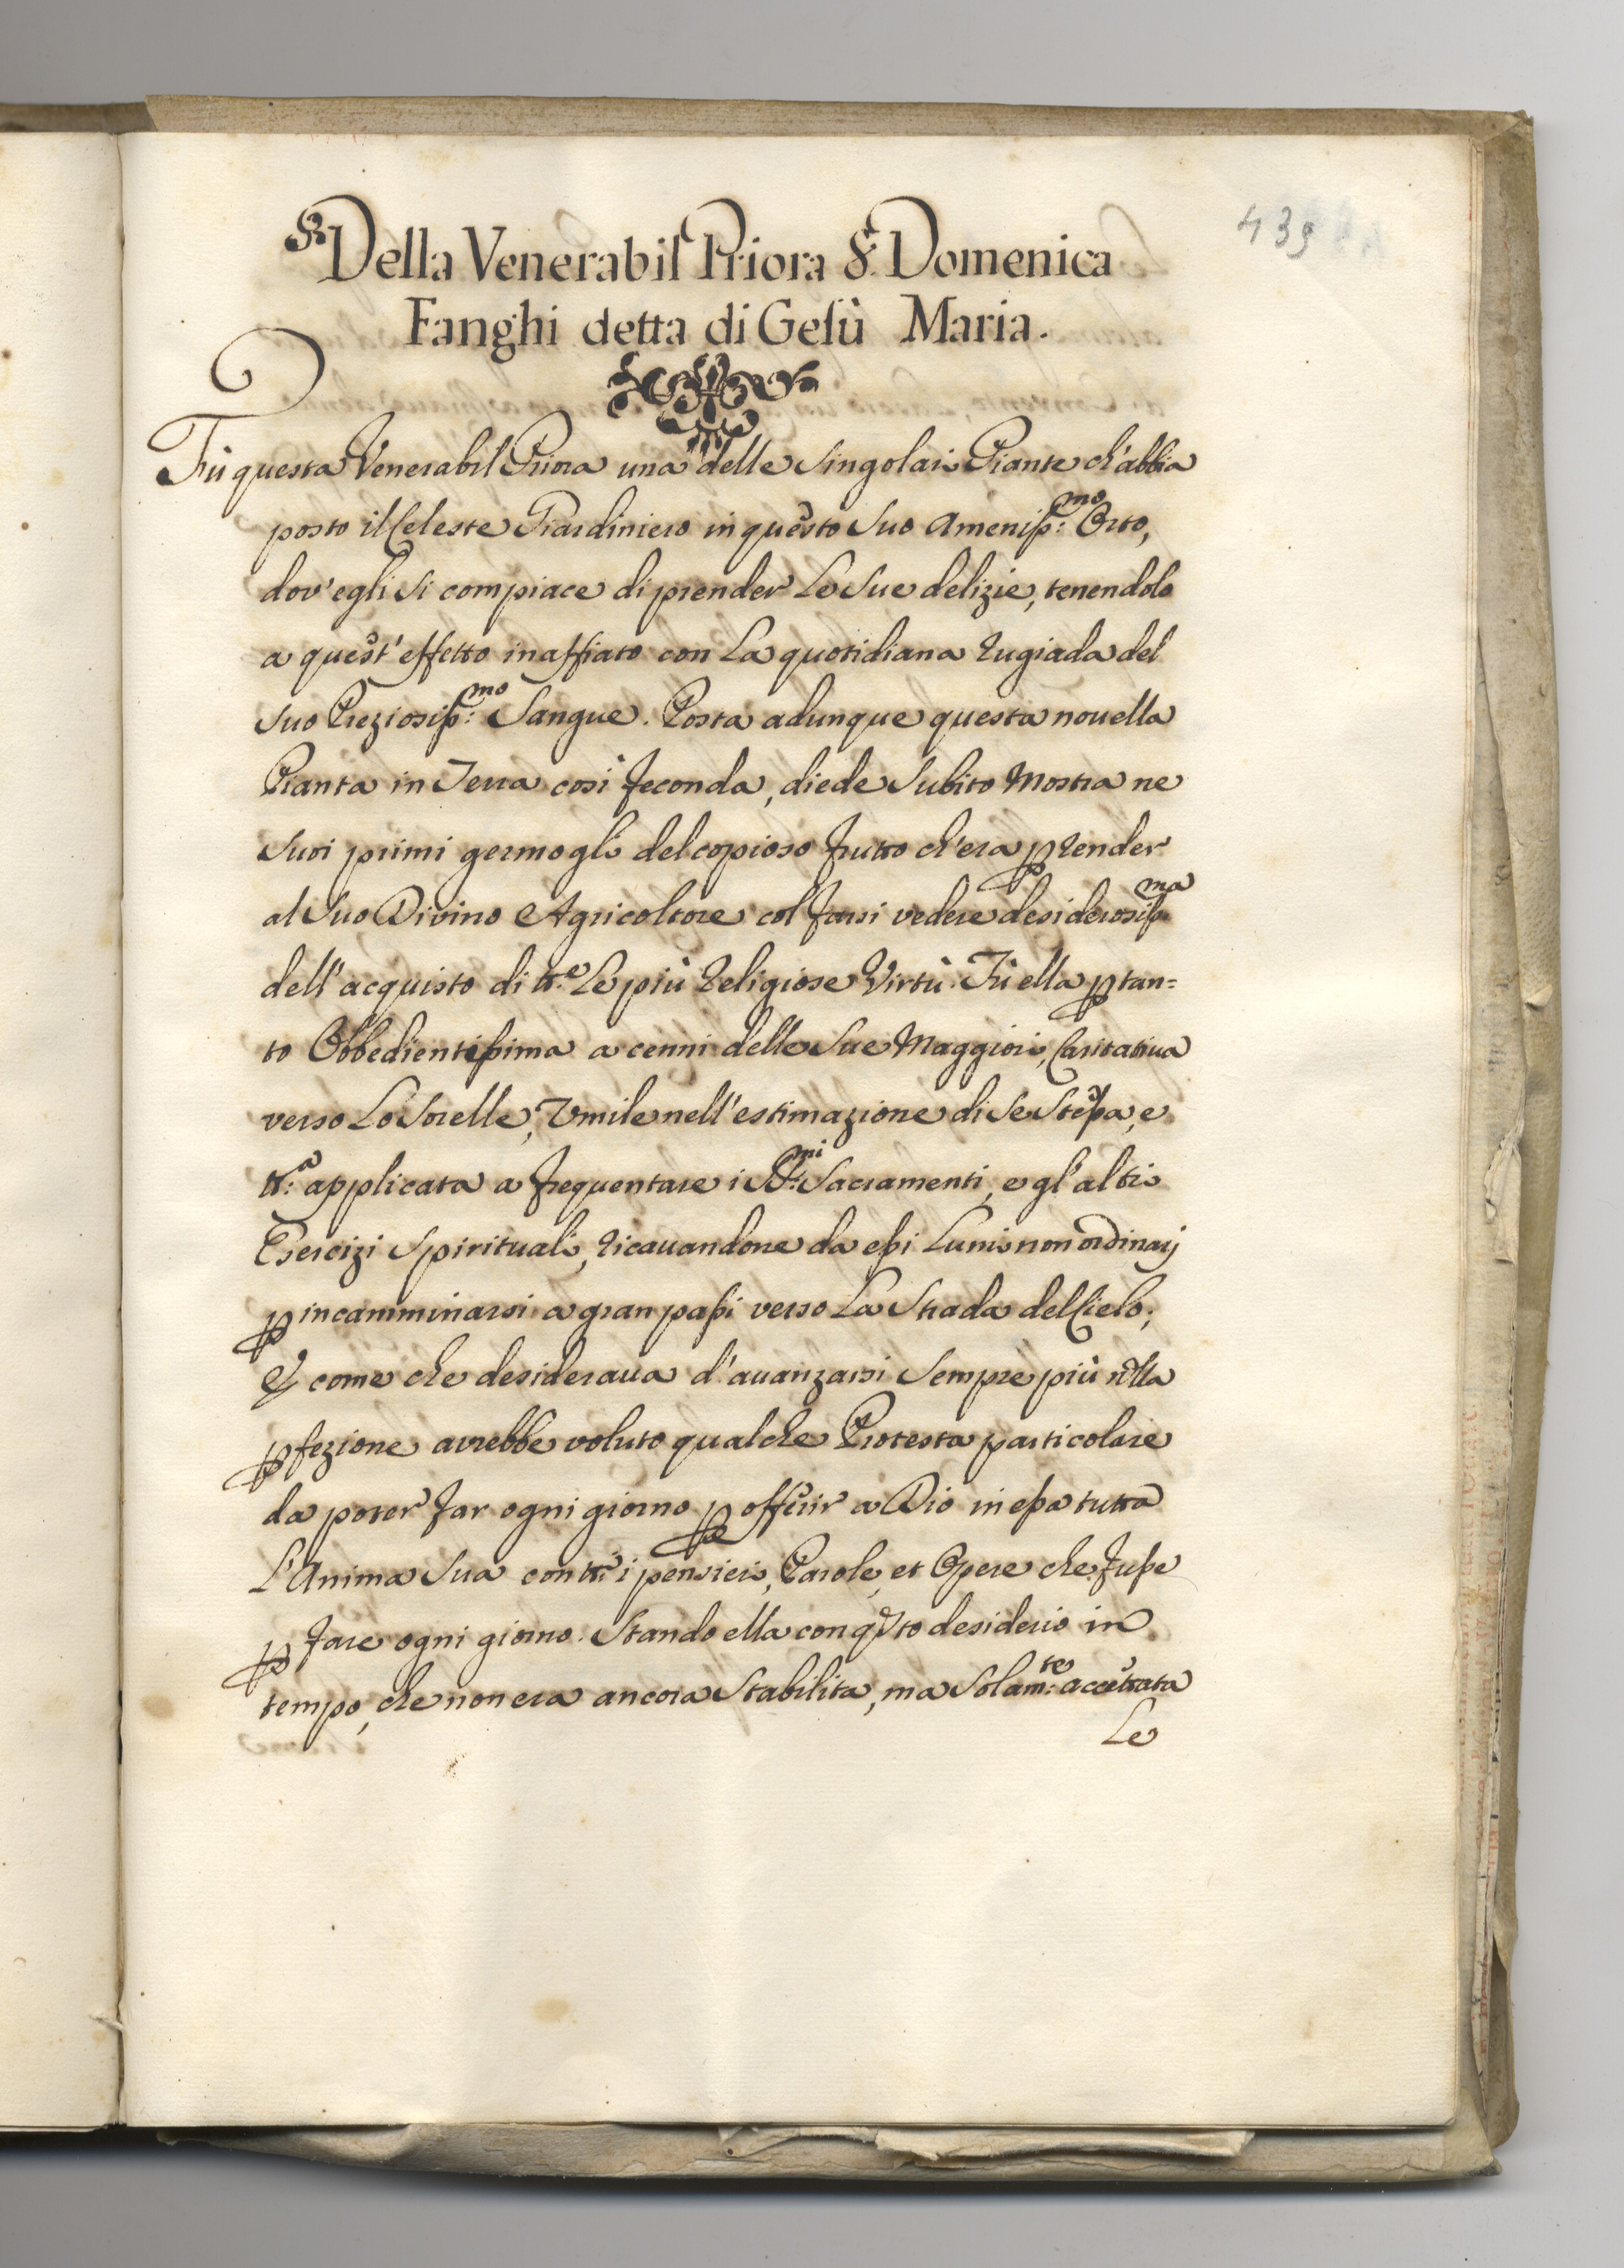 439
Della Venerabil Priora Sr. Domenica
Fanghi detta di Gesù Maria.
Fù questa Venerabil Priora una delle singolari Piante ch'abbia
posto il Celeste Giardiniero in questo suo Ameniss:mo Orto,
dov'egli si compiace di prender Le sue delizie, tenendolo
a quest'effetto inaffiato con La quotidiana rugiada del
suo Preziosiss:mo Sangue. Posta adunque questa nouella
Pianta in Terra così feconda, diede subito Mostra ne
suoi primi germogli del copioso frutto ch'era p render
al suo Divino Agricoltore col farsi vedere desiderosissma
dell'acquisto di tt.e Le più Religiose Virtù. Fù ella p tan=
to Obbedientissima a cenni delle sue Maggiori, Caritatiua
verso Le Sorelle, Vmile nell'estimazione di se stessa, e
tt:a applicata a frequentare i SS:mi Sacramenti, e gl'altri
Esercizi Spirituali, ricauandone da essi Lumi non ordinarj
p incamminarsi a gran passi verso La Strada del Cielo;
Et come che desideraua d'auanzarsi sempre più nlla
pfezione avrebbe voluto qualche Protesta particolare
da poter far ogni giorno p offerir a Dio in essa tutta
L'Anima sua con tti i pensieri, Parole, et Opere che fusse
p fare ogni giorno. Stando ella con qsto desiderio in
tempo, che non era ancora Stabilita, ma solam:te accettata
Le